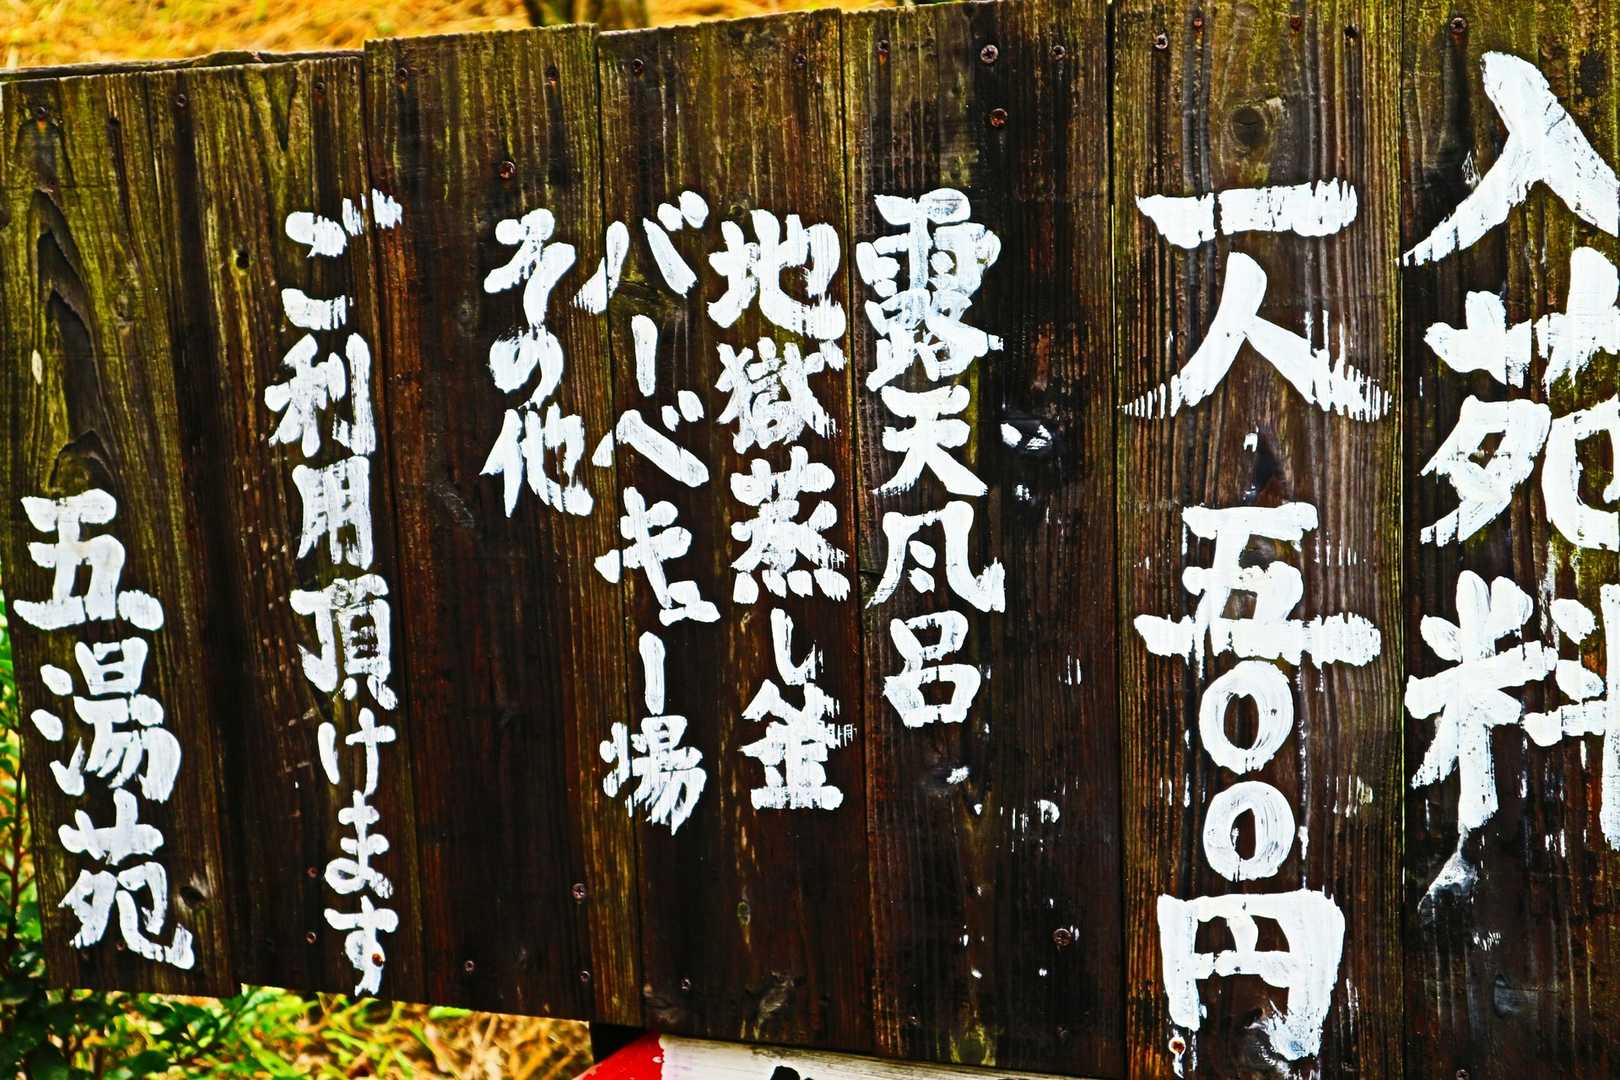 入苑料
一人 五〇〇円
露天風呂
地獄蒸し釜
バーベキュー場
その他
ご利用頂けます
五湯苑